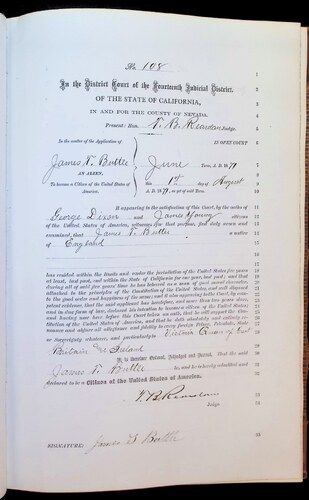 No. 108
1
In the District Court of the Fourteenth Judicial District,
2
OF THE STATE OF CALIFORNIA,
3
IN AND FOR THE COUNTY OF NEVADA.
4
Present: Hon. T. B. Reardon Judge.
5
In the matter of the Application of
IN OPEN COURT
6
James T. Buttle
June Term, A. D. 1871
7
AN ALIEN,
8
To become a Citizen of the United States of
this 1st day of August
9
America.
A. D. 1871
10
It appearing to the satisfaction of this Court, by the oaths of
11
George Dixser and James Young citizens
12
of the United States of America, witnesses for that purpose, first duly sworn and
13
examined, that James T. Buttle a native
14
of England
15
has resided within the limits and under the jurisdiction of the United States five years
at least, last past, and within the State of California for one year, last past; and that
during all of said five years' time he has behaved as a man of good moral character,
attached to the principles of the Constitution of the United States, and well disposed
to the good order and happiness of the same; and it also appearing to the Court, by com-
petent evidence, that the said applicant has heretofore, and more than two years since,
and in due form of law, declared his intention to become a citizen of the United States;
and having now here before this Court taken an oath, that he will support the Con-
stitution of the United States of America, and that he doth absolutely and entirely re-
nounce and abjure all allegiance and fidelity to every foreign Prince, Potentate, State
or Sovereignty whatever, and particularly to Victoria Queen of Great
Britain & Ireland
It is therefore Ordered, Adjudged and Decreed, That the said
James T. Buttle be, and he is hereby admitted and
declared to be a Citizen of the United States of America.
T. B. Reardon
Judge
SIGNATURE: James T Buttle